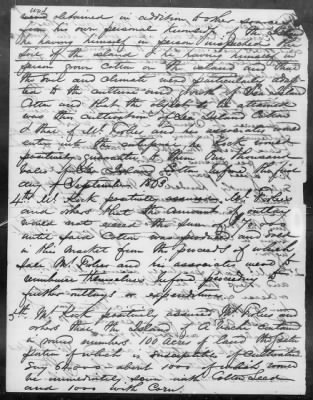 was obtained in addition to other sources
from his own personal knowledge of the island
he having himself in person inspected the
soil of the island and he having himself in
person grown cotton on the island and that
the soil and climate were particularly adap-
ted to the culture and growth of Sea Island
Cotton and that the object to be attained
was the cultivation of Sea Island Cotton
& that if Mr and his associates would
enter into the enterprise he Kock would
positively guarantee to them One thousand
bales of Sea Island Cotton before the first
day of September 1863.
4th Mr Kock positively assured Mr
and others that the amount of outlay
would not exceed the sum of
until said Cotton was produced and sold
in this market from the proceeds of which
sale Mr and his associates were to
reimburse themselves before proceeding to
further outlays or expenditures.
5th Mr Kock positively assured Mr
and others that the Island of A Vache contained
in round numbers 100 acres of land the
portion of which is susceptible of cultivation
say about 1000 of which would
be immediately sown with Cotton Seed
and 1000 with Corn.